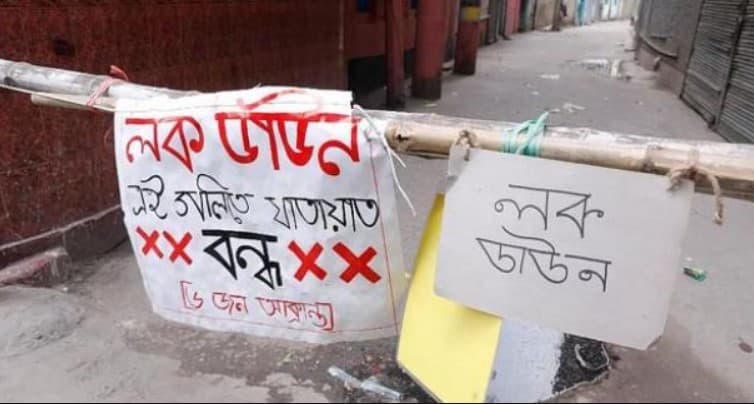 লক ডাউন
এই গলিতে যাতায়াত
×× বন্ধ ××
[৬ জন আক্রান্ত]
লক
ডাউন